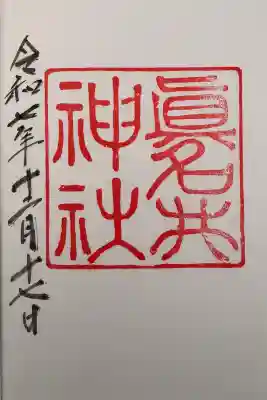 眞名井
神社
令和七年十二月十七日